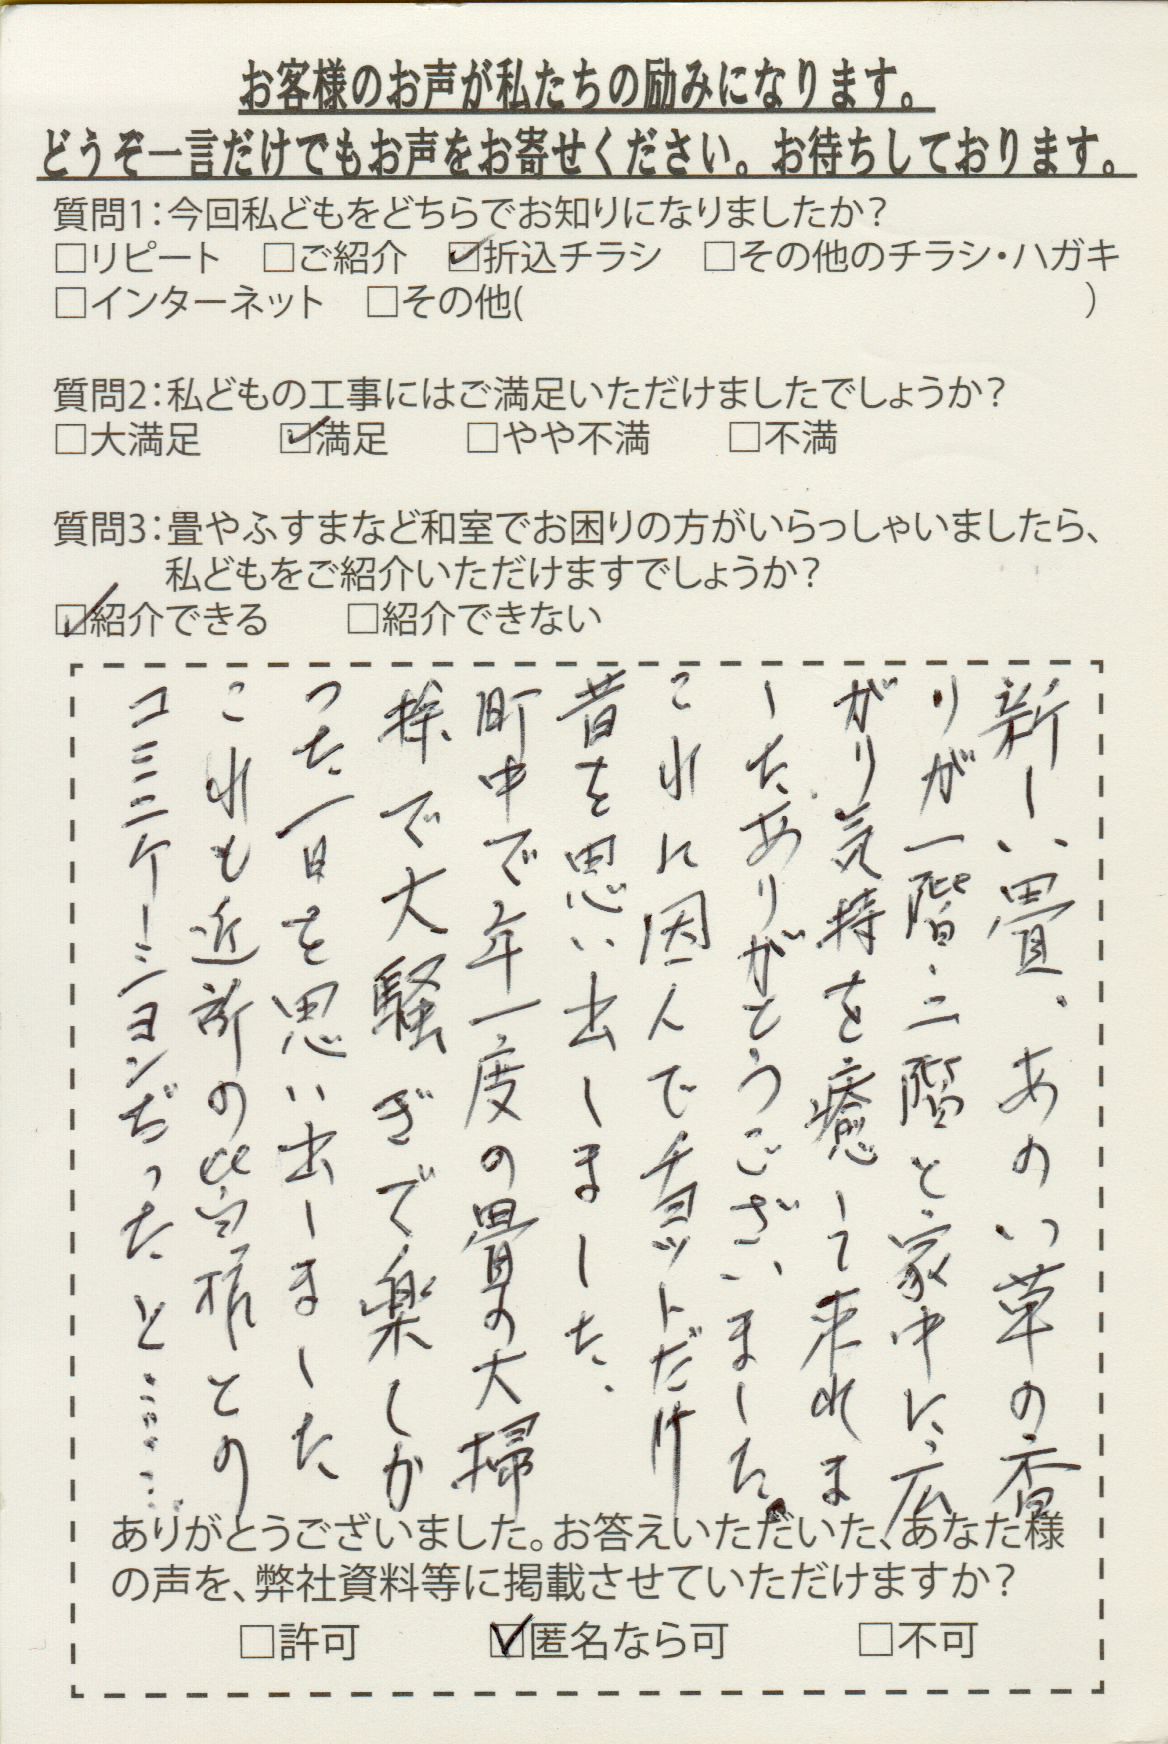 お客様のお声が私たちの励みになります。
どうぞ一言だけでもお声をお寄せください。お待ちしております。
質問1:今回私どもをどちらでお知りになりましたか?
□リピート □ご紹介 ☑折込チラシ □その他のチラシ・ハガキ
□インターネット □その他( )
質問2:私どもの工事にはご満足いただけましたでしょうか?
□大満足 ☑満足 □やや不満 □不満
質問3:畳やふすまなど和室でお困りの方がいらっしゃいましたら、
私どもをご紹介いただけますでしょうか?
☑紹介できる □紹介できない
新しい畳。あのい草の香
りが一階・二階と家中に広
がり気持を癒して来れま
したありがとうございました。
これに因んでチョットだけ
昔を思い出しました、
町中で年一度の畳の大掃
除で大騒ぎで楽しか
った一日を思い出しました
これも近所の皆様との
コミニケーションだったと……
ありがとうございました。お答えいただいた、あなた様
の声を、弊社資料等に掲載させていただけますか?
□許可 ☑匿名なら可 □不可